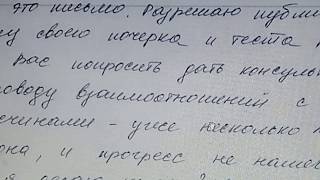 это письмо. Разрешаю публи
у своего почерка и текста
Вас попросить дать консуль
оводу взаимоотношений с
чинами - уже несколько
она, и прогресс не намеч